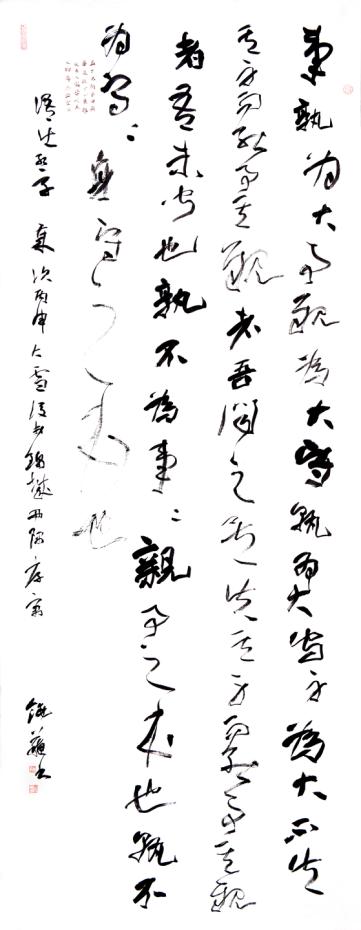 事孰为大事親為大守孰為大守身為大不失
其身而能事其親者吾聞之矣失其身而能事其親
者吾未聞也孰不為事〻親事之本也孰不
为守〻身守之本也
孟子 歲次丙申大雪